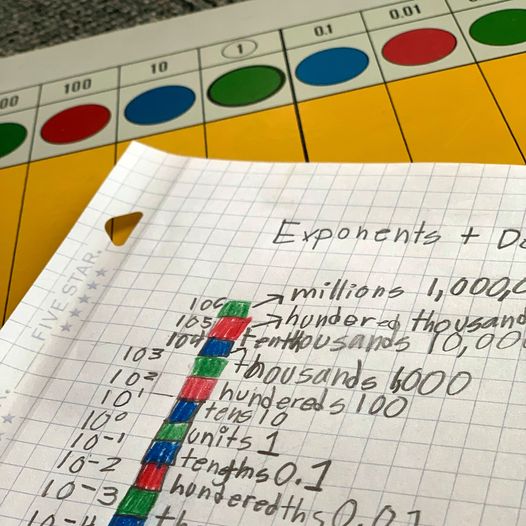 00 100 10 1 0.1 0.01
Exponents + D
FIVE STAR.
10⁶ → millions 1,000,0
10⁵ → hundered thousand
10⁴ tenthousands 10,000
10³ thousands 1000
10² hundereds 100
10¹ tens 10
10⁰ units 1
10-1 tengths 0.1
10-2 hunderedths 0.01
10-3 th
10-4